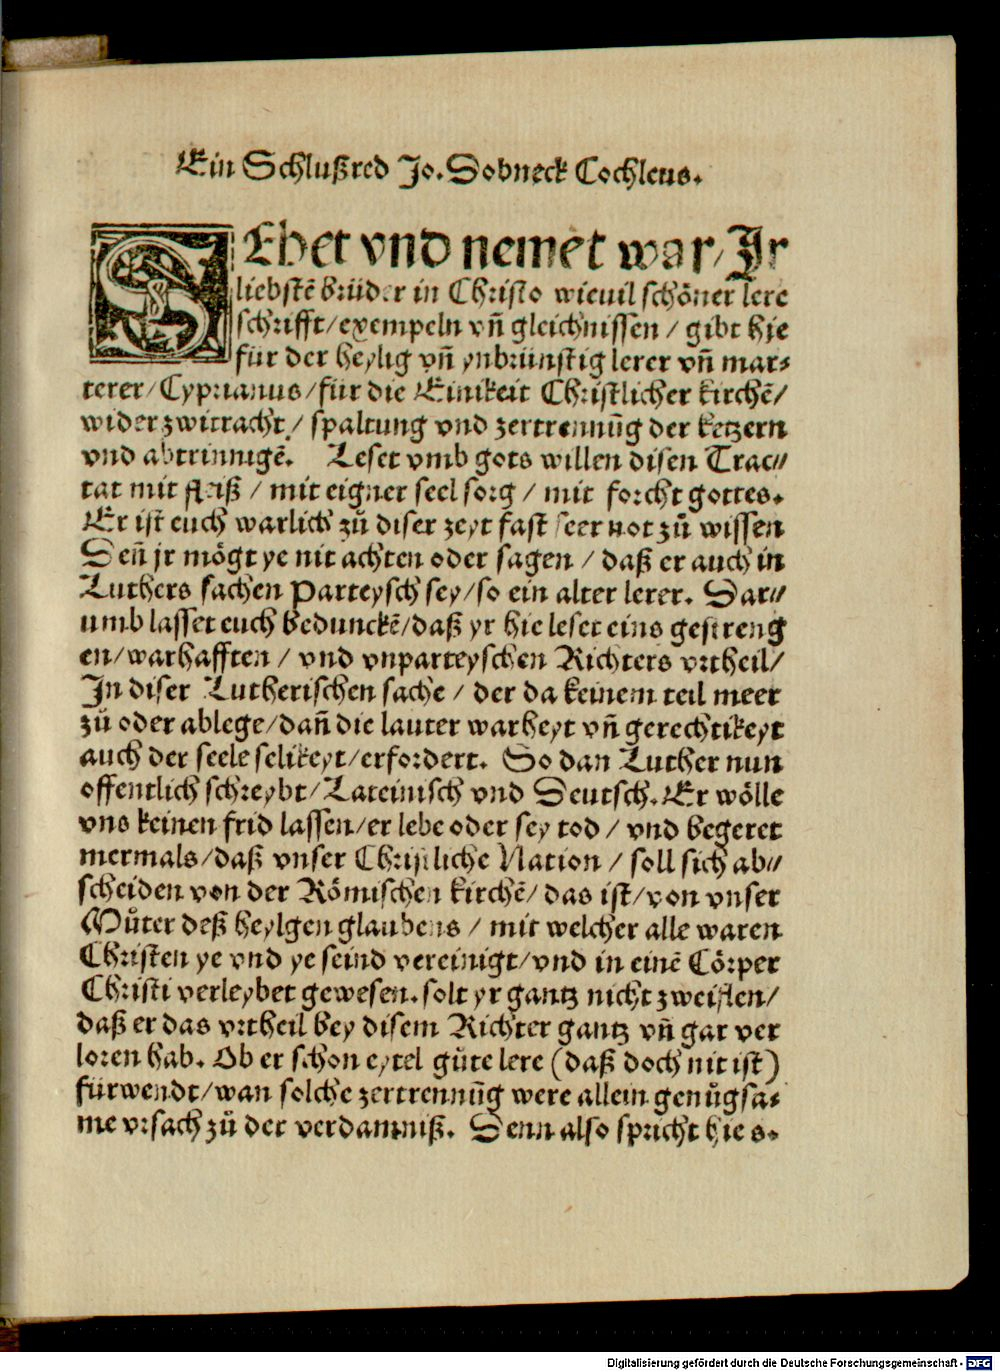 Ein Schlußred Jo. Dobneck Cochleus.
SEhet vnd nemet war/ Jr
liebstē brüder in Christo wieuil schöner lere
schrifft/ exempeln vñ gleichnissen / gibt hie
für der heylig vñ ynbrünstig lerer vñ mar⸗
terer/ Cyprianus/ für die Einikeit Christlicher kirchē/
wider zwitracht/ spaltung vnd zertrennūg der ketzern
vnd abtrinnigē. Leset vmb gots willen disen Trac⸗
tat mit fleiß / mit eigner seel sorg / mit forcht gottes.
Er ist euch warlich zů diser zeyt fast seer not zů wissen
Deñ jr mögt ye nit achten oder sagen / daß er auch in
Luthers sachen Parteysch sey/ so ein alter lerer. Dar⸗
umb lasset euch bedunckē/ daß yr hie leset eins gestreng
en/ warhafften / vnd vnparteyschen Richters vrtheil/
In diser Lutherischen sache / der da keinem teil meer
zů oder ablege/ dañ die lauter warheyt vñ gerechtikeyt
auch der seele selikeyt/ erfordert. So dan Luther nun
offentlich schreybt/ Lateinisch vnd Deutsch. Er wölle
vns keinen frid lassen/ er lebe oder sey tod / vnd begeret
mermals/ daß vnser Christliche Nation / soll sich ab⸗
scheiden von der Römischen kirchē/ das ist/ von vnser
Můter deß heylgen glaubens / mit welcher alle waren
Christen ye vnd ye seind vereinigt/ vnd in einē Cörper
Christi verleybet gewesen. solt yr gantz nicht zweiflen/
daß er das vrtheil bey disem Richter gantz vñ gar ver
loren hab. Ob er schon eytel gůte lere (daß doch nit ist)
fürwendt/ wan solche zertrennūg were allein genůgsa⸗
me vrsach zů der verdamniß. Denn also spricht hie s.
Digitalisierung gefördert durch die Deutsche Forschungsgemeinschaft - DFG